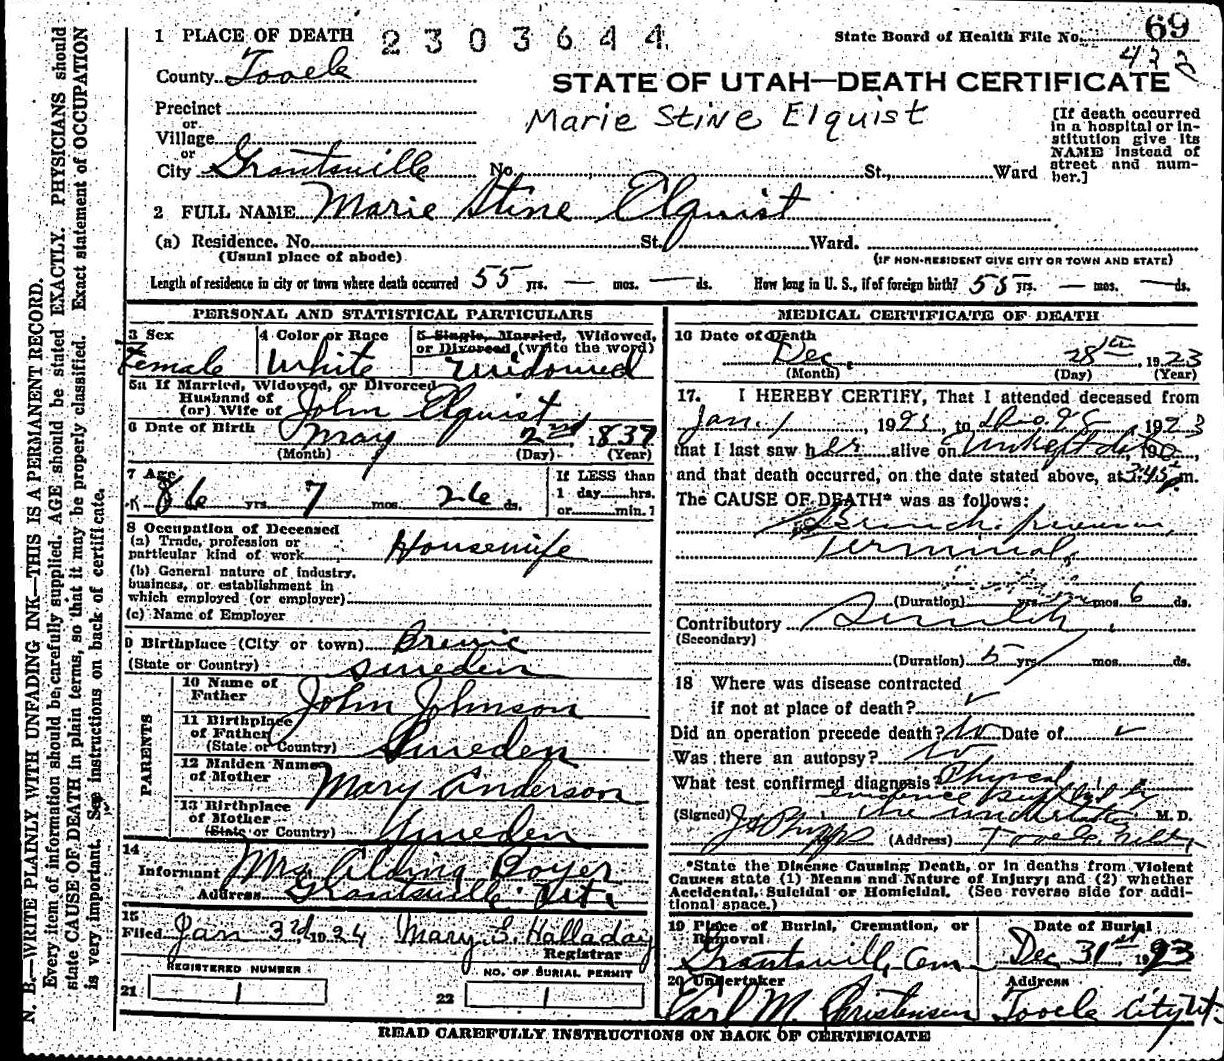 69
1 PLACE OF DEATH 2303644 State Board of Health File No. 422
County Tooele
STATE OF UTAH—DEATH CERTIFICATE
Precinct
or
Village
or
City Grantsville No. St., Ward
Marie Stine Elquist
[If death occurred
in a hospital or in-
stitution give its
NAME instead of
street and num-
ber.]
2 FULL NAME Marie Stine Elquist
(a) Residence. No. St. Ward.
(Usual place of abode) (IF NON-RESIDENT GIVE CITY OR TOWN AND STATE)
Length of residence in city or town where death occurred 55 yrs. — mos. — ds. How long in U. S., if of foreign birth? 55 yrs. — mos. — ds.
PERSONAL AND STATISTICAL PARTICULARS
3 Sex
Female
4 Color or Race
White
5 Single, Married, Widowed,
or Divorced (write the word)
Widowed
5a If Married, Widowed, or Divorced
Husband of
(or) Wife of John Elquist
6 Date of Birth May 2nd 1837
(Month) (Day) (Year)
7 Age
86 yrs 7 mos 26 ds.
If LESS than
1 day hrs.
or min.?
8 Occupation of Deceased
(a) Trade, profession or
particular kind of work Housewife
(b) General nature of industry,
business, or establishment in
which employed (or employer)
(c) Name of Employer
9 Birthplace (City or town)
(State or Country) Sweden
PARENTS
10 Name of
Father John Johnson
11 Birthplace
of Father
(State or Country) Sweden
12 Maiden Name
of Mother Mary Anderson
13 Birthplace
of Mother
(State or Country) Sweden
14
Informant Mrs Boyer
Address Grantsville Ut.
15
Filed Jan 3rd, 1924 Mary S. Halladay
Registrar
REGISTERED NUMBER
21
NO. OF BURIAL PERMIT
22
MEDICAL CERTIFICATE OF DEATH
16 Date of Death
Dec. 28th, 1923
(Month) (Day) (Year)
17. I HEREBY CERTIFY, That I attended deceased from
Jan. 1, 192 to 1923
that I last saw her alive on 19
and that death occurred, on the date stated above, at 3:45 m.
The CAUSE OF DEATH* was as follows:
Terminal
(Duration) yrs. mos. 6 ds.
Contributory Senility
(Secondary)
(Duration) 5 yrs. mos. ds.
18 Where was disease contracted
if not at place of death?
Did an operation precede death? No Date of
Was there an autopsy? No
What test confirmed diagnosis? Physical
(Signed) M. D.
(Address) Tooele
*State the Disease Causing Death, or in deaths from Violent
Causes state (1) Means and Nature of Injury; and (2) whether
Accidental, Suicidal or Homicidal. (See reverse side for addi-
tional space.)
19 Place of Burial, Cremation, or
Removal
Grantsville, Cem
Date of Burial
Dec 31st 1923
20 Undertaker
Carl M. Christensen
Address
Tooele City Ut.
READ CAREFULLY INSTRUCTIONS ON BACK OF CERTIFICATE
N. B.—WRITE PLAINLY WITH UNFADING INK—THIS IS A PERMANENT RECORD.
Every item of information should be carefully supplied. AGE should be stated EXACTLY. PHYSICIANS should
state CAUSE OF DEATH in plain terms, so that it may be properly classified. Exact statement of OCCUPATION
is very important. See instructions on back of certificate.